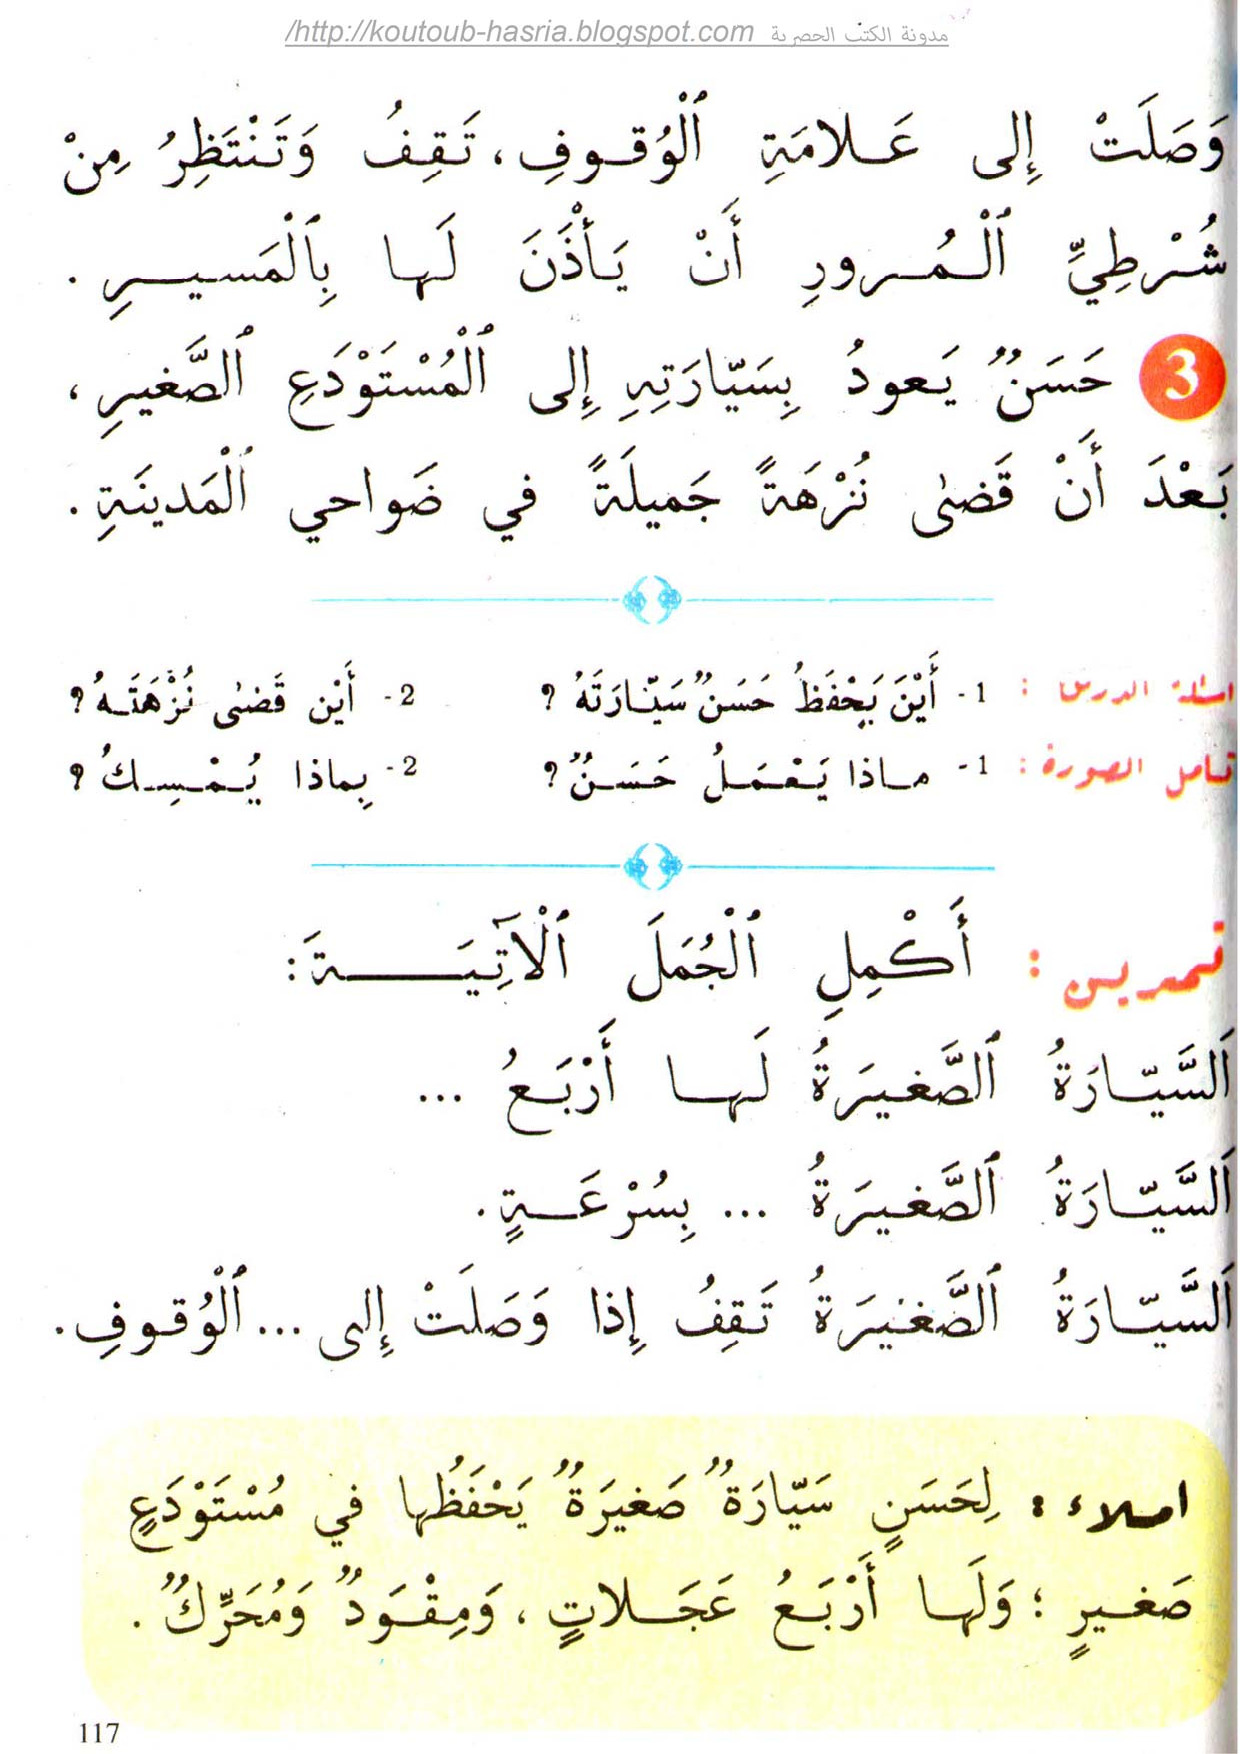 مدونة الكتب الحصرية http://koutoub-hasria.blogspot.com/
وَصَلَتْ إِلى عَلامَةِ ٱلْوُقوفِ، تَقِفُ وَتَنْتَظِرُ مِنْ
شُرْطِيِّ ٱلْمُرورِ أَنْ يَأْذَنَ لَها بِٱلْمَسيرِ .
3 حَسَنٌ يَعودُ بِسَيّارَتِهِ إِلى ٱلْمُسْتَوْدَعِ ٱلصَّغيرِ ،
بَعْدَ أَنْ قَضىٰ نُزْهَةً جَميلَةً في ضَواحي ٱلْمَدينَةِ .
اسئلة الدرس : 1 - أَيْنَ يَحْفَظُ حَسَنٌ سَيّارَتَهُ ؟ 2 - أَيْن قَضىٰ نُزْهَتَهُ ؟
تأمل الصورة : 1 - ماذا يَعْمَلُ حَسَنٌ ؟ 2 - بِماذا يُمْسِكُ ؟
تمرين : أَكْمِلِ ٱلْجُمَلَ ٱلْآتِيَةَ :
اَلسَّيّارَةُ ٱلصَّغيرَةُ لَها أَرْبَعُ ...
اَلسَّيّارَةُ ٱلصَّغيرَةُ ... بِسُرْعَةٍ .
اَلسَّيّارَةُ ٱلصَّغيرَةُ تَقِفُ إِذا وَصَلَتْ إِلى ... ٱلْوُقوفِ .
املاء : لِحَسَنٍ سَيّارَةٌ صَغيرَةٌ يَحْفَظُها في مُسْتَوْدَعٍ
صَغيرٍ ؛ وَلَها أَرْبَعُ عَجَلاتٍ ، وَمِقْوَدٌ وَمُحَرِّكٌ .
117